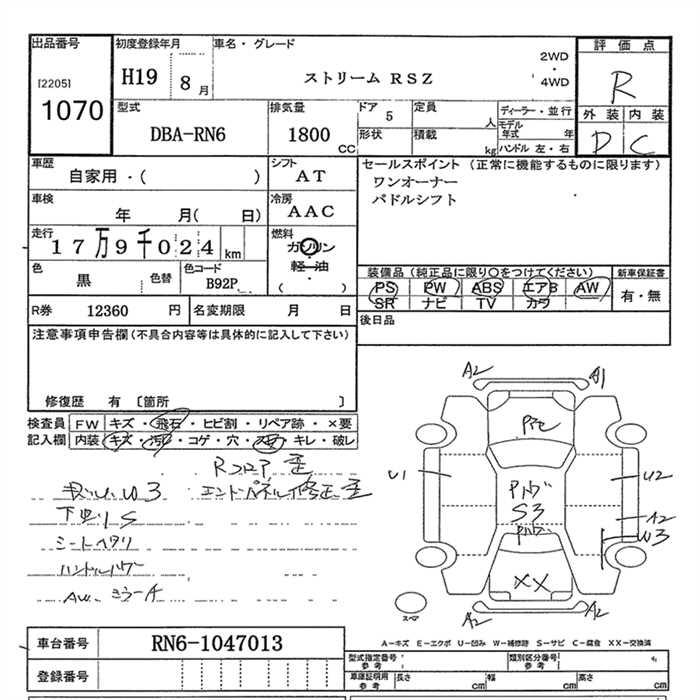 出品番号 初度登録年月 車名・グレード 評価点
[2205] H19 8月 ストリーム RSZ 2WD・4WD R
1070 型式 排気量 ドア 定員 ディーラー・並行 外装 内装
DBA-RN6 1800 CC 5 人 モデル年式 年 D C
形状 積載 kg ハンドル 左・右
車歴 シフト セールスポイント(正常に機能するものに限ります)
自家用・( ) AT ワンオーナー
車検 冷房 パドルシフト
年 月( 日) AAC
走行 燃料
17万9千024 km ガソリン
軽・油
( )
色 色替 色コード 装備品(純正品に限り○をつけてください) 新車保証書
黒 B92P PS PW ABS エアB AW 有・無
SR ナビ TV カワ
R券 12360 円 名変期限 月 日 後日品
注意事項申告欄(不具合内容等は具体的に記入して下さい)
修復歴 有 〔箇所 〕
検査員 FW キズ・飛石・ヒビ割・リペア跡・×要
記入欄 内装 キズ・汚レ・コゲ・穴・スレ・キレ・破レ
Rフロア 歪
W3 エンドパネル修正歪
下回りS
シートヘタリ
ハンドル
AW
A2 A1
U1 U2
S3
A2
W3
XX
A2 A2
スペア
A-キズ E-エクボ U-凹み W-補修跡 S-サビ C-腐食 XX-交換済
車台番号 RN6-1047013 型式指定番号 参考 類別区分番号 参考
登録番号 車庫証明用 参考 長さ cm 幅 cm 高さ cm